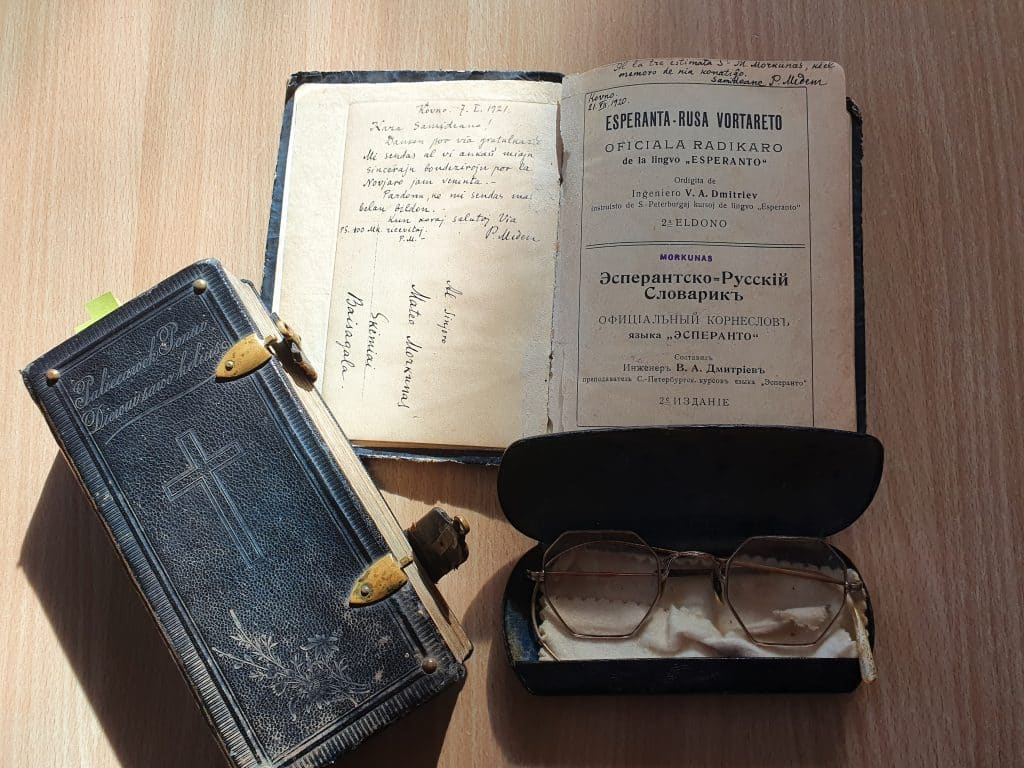 Kovno. 7. I. 1921.
Kara Samideano!
Dankon por via gratulkarto
Mi sendas al vi ankaŭ miajn
sincerajn bondezirojn por la
Novjaro jam veninta. -
Pardonu, ke mi sendas mal
belan bildon. -
Kun koraj salutoj Via
P. Medem
PS. 100 Mk ricevitaj.
P.M. -
Al Sinjoro
Mateo Morkunas
Skimiai
Baisagala.
Al la tre estimata S-ro M. Morkunas, kiel
memoro de nia konatiĝo.
Samideane P. Medem
Kovno.
21.VII.1920.
ESPERANTA-RUSA VORTARETO
OFICIALA RADIKARO
de la lingvo „ESPERANTO“
Ordigita de
Inĝeniero V. A. Dmitriev
instruisto de S.-Peterburgaj kursoj de lingvo „Esperanto“
2a ELDONO
MORKUNAS
Эсперантско=Русскій
Словарикъ
ОФИЦІАЛЬНЫЙ КОРНЕСЛОВЪ
языка „ЭСПЕРАНТО“
Составилъ
Инженеръ В. А. Дмитріевъ
преподаватель С.-Петербургск. курсовъ языка „Эсперанто“
2е ИЗДАНІЕ
Pono